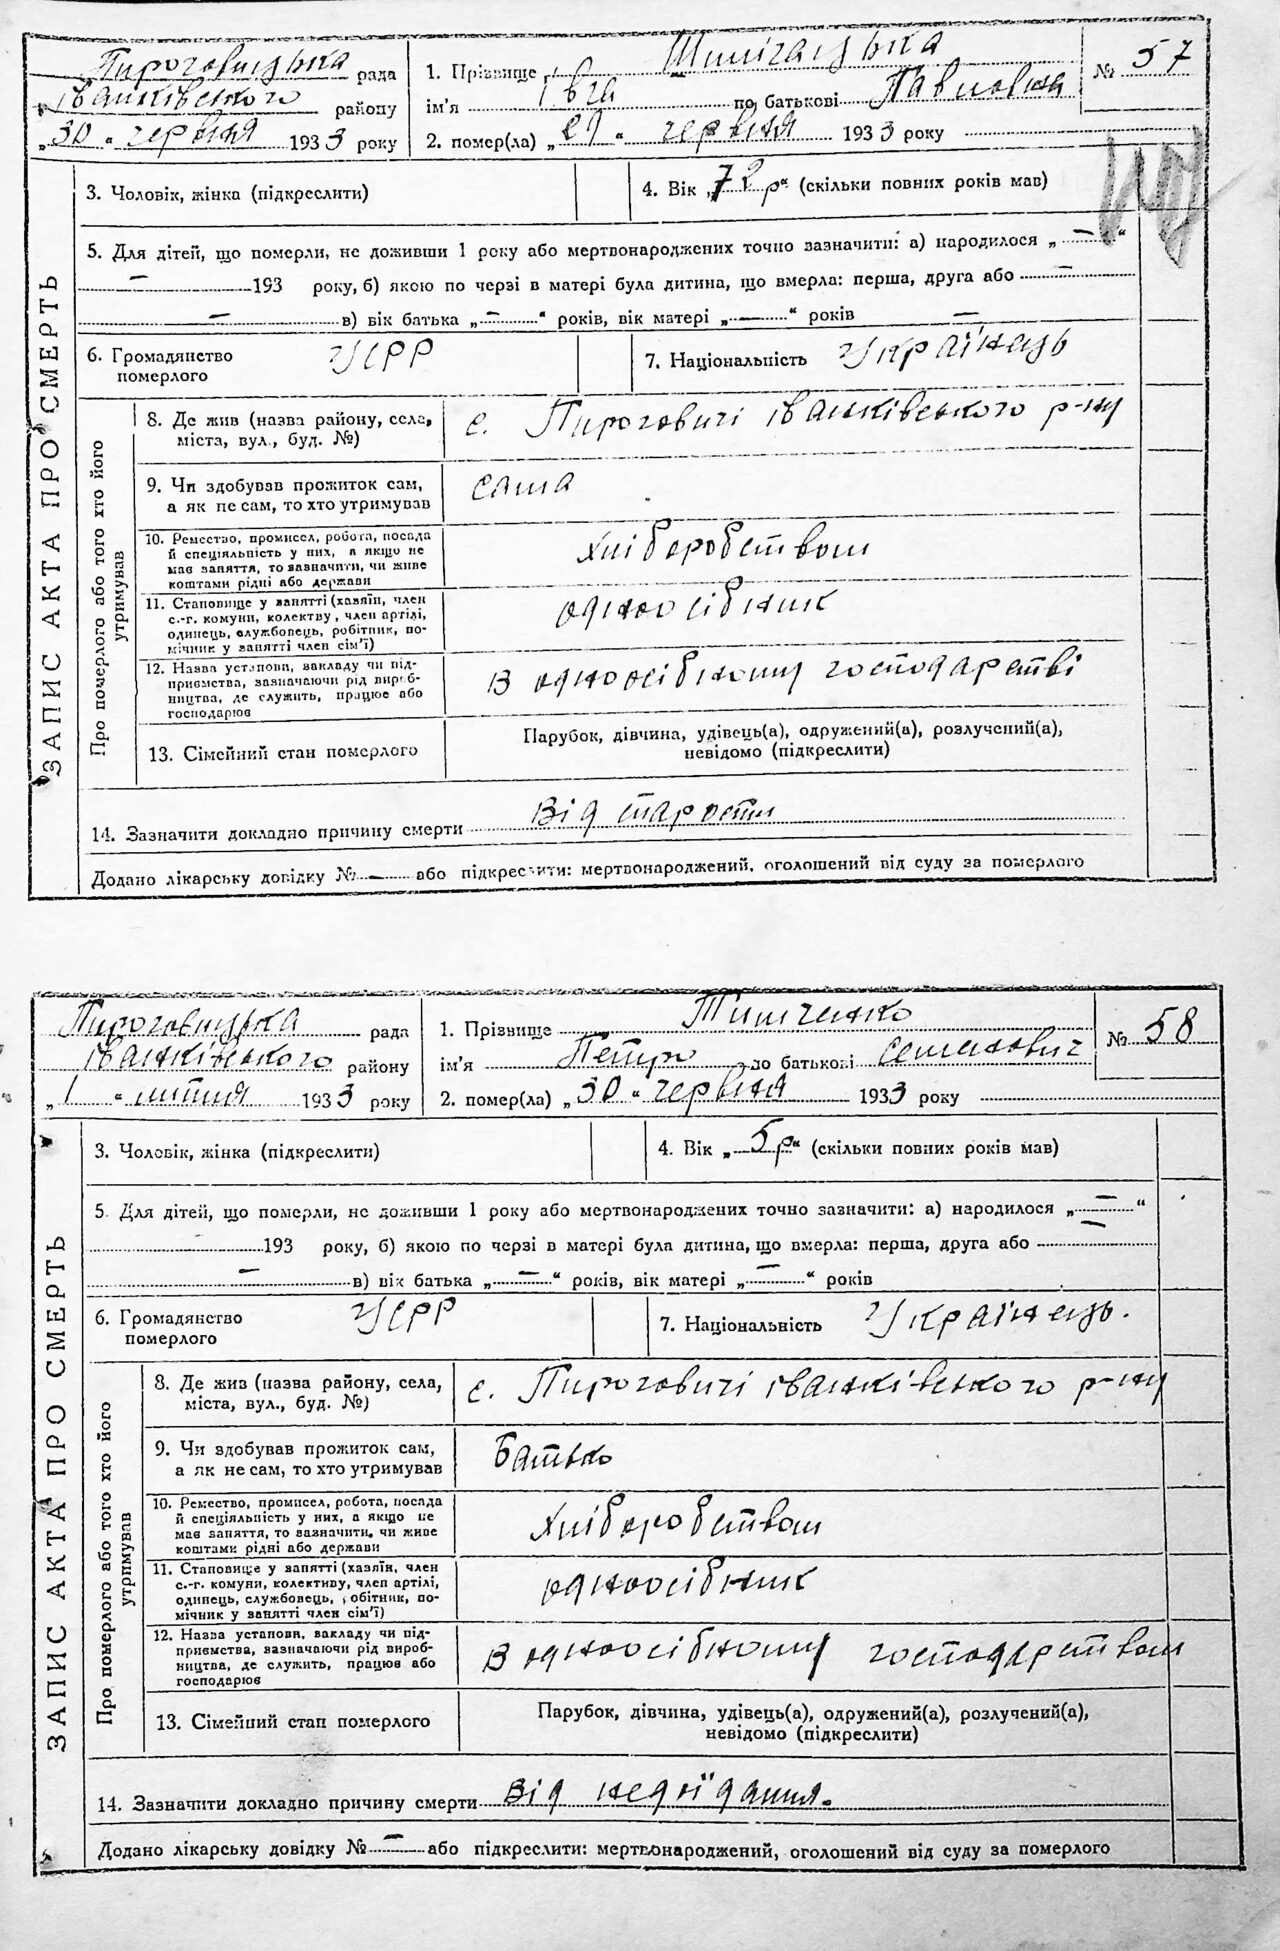 Пироговицька рада
Іванківського району
„30“ червня 1933 року
1. Прізвище
ім'я Івга по батькові Павловна
2. помер(ла) „29“ червня 1933 року
№ 57
3. Чоловік, жінка (підкреслити)
4. Вік „72 р“ (скільки повних років мав)
5. Для дітей, що померли, не доживши 1 року або мертвонароджених точно зазначити: а) народилося „—“
— 193 року, б) якою по черзі в матері була дитина, що вмерла: перша, друга або —
— в) вік батька „—“ років, вік матері „—“ років —
6. Громадянство УСРР
померлого
7. Національність Українець
ЗАПИС АКТА ПРО СМЕРТЬ
Про померлого або того хто його
утримував
8. Де жив (назва району, села,
міста, вул., буд. №)
с. Пироговичі Іванківського р-ну
9. Чи здобував прожиток сам,
а як не сам, то хто утримував
сама
10. Ремество, промисел, робота, посада
й спеціяльність у них, а якщо не
має заняття, то зазначити, чи живе
коштами рідні або держави
Хліборобством
11. Становище у занятті (хазяїн, член
с.-г. комуни, колективу, член артілі,
одинець, службовець, робітник, по-
мічник у занятті член сім'ї)
одноосібник
12. Назва установи, закладу чи під-
приємства, зазначаючи рід вироб-
ництва, де служить, працює або
господарює
В одноосібному господарстві
13. Сімейний стан померлого
Парубок, дівчина, удівець(а), одружений(а), розлучений(а),
невідомо (підкреслити)
14. Зазначити докладно причину смерти Від старости
Додано лікарську довідку № — або підкреслити: мертвонароджений, оголошений від суду за померлого
Пироговицька рада
Іванківського району
„1“ липня 1933 року
1. Прізвище Тимченко
ім'я Петро по батькові Семенович
2. помер(ла) „30“ червня 1933 року
№ 58
3. Чоловік, жінка (підкреслити)
4. Вік „5 р“ (скільки повних років мав)
5. Для дітей, що померли, не доживши 1 року або мертвонароджених точно зазначити: а) народилося „—“
193 року, б) якою по черзі в матері була дитина, що вмерла: перша, друга або —
— в) вік батька „—“ років, вік матері „—“ років
6. Громадянство УСРР
померлого
7. Національність Українець.
ЗАПИС АКТА ПРО СМЕРТЬ
Про померлого або того хто його
утримував
8. Де жив (назва району, села,
міста, вул., буд. №)
с. Пироговичі Іванківського р-ну
9. Чи здобував прожиток сам,
а як не сам, то хто утримував
Батько
10. Ремество, промисел, робота, посада
й спеціяльність у них, а якщо не
має заняття, то зазначити, чи живе
коштами рідні або держави
Хліборобством
11. Становище у занятті (хазяїн, член
с.-г. комуни, колективу, член артілі,
одинець, службовець, робітник, по-
мічник у занятті член сім'ї)
одноосібник
12. Назва установи, закладу чи під-
приємства, зазначаючи рід вироб-
ництва, де служить, працює або
господарює
В одноосібному господарством
13. Сімейний стан померлого
Парубок, дівчина, удівець(а), одружений(а), розлучений(а),
невідомо (підкреслити)
14. Зазначити докладно причину смерти Від недоїдання.
Додано лікарську довідку № — або підкреслити: мертвонароджений, оголошений від суду за померлого